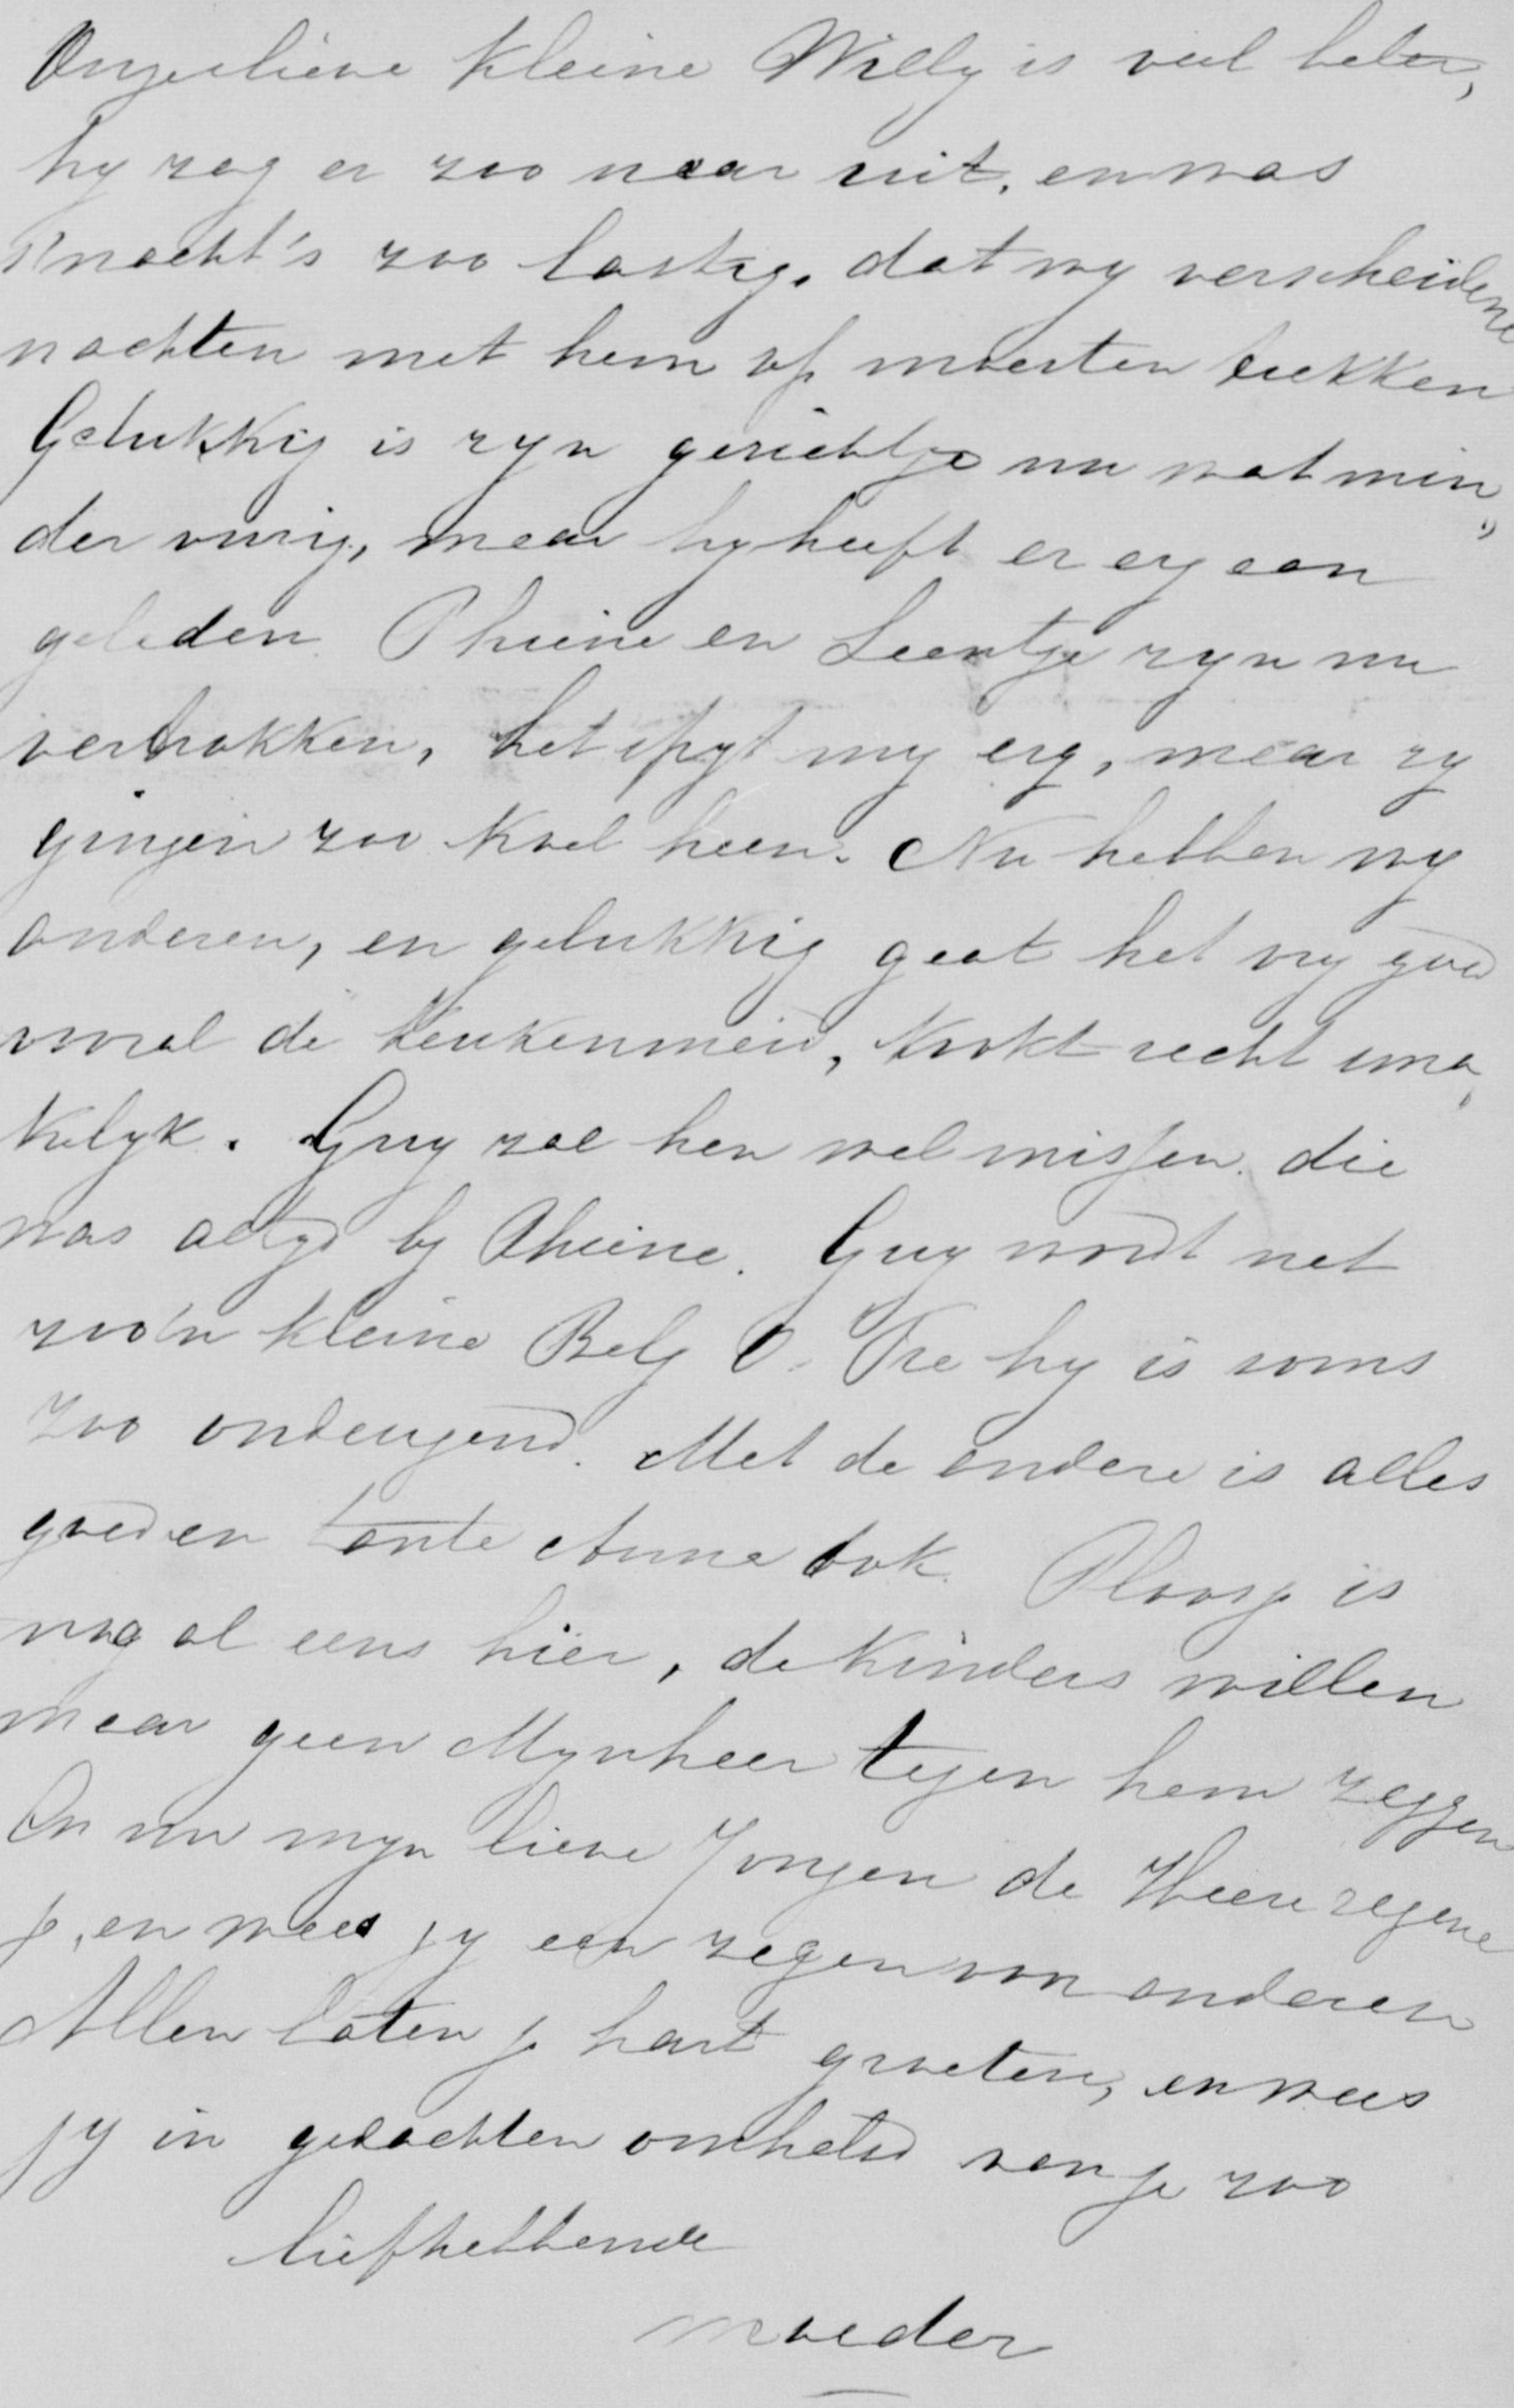 Onze lieve kleine Willy is veel beter,
hy zag er zoo naar uit, en was
s'nacht's zoo lastig, dat wy verscheidene
nachten met hem op moesten trekken
Gelukkig is zyn gezichtje nu wat min„
der vurig, maar hy heeft er erg aan
geleden. Phiene en Leentje zyn nu
vertrokken, het spyt my erg, maar zy
gingen zoo koel heen. Nu hebben wy
anderen, en gelukkig gaat het vry goed
vooral de keukenmeid, kookt recht sma„
kelyk. Guy zal hen wel missen. die
was altyd by Phiene. Guy wordt net
zoo'n kleine Belg O. Fre hy is soms
zoo ondeugend. Met de andere is alles
goed en tante Anna ook. Ploosje is
nog al eens hier, de kinders willen
maar geen Mynheer tegen hem zeggen
En nu myn lieve Jongen de Heere zegene
je, en wees jy een zegen voor anderen
Allen laten je hart groeten, en wees
jy in gedachten omhelsd van je zoo
liefhebbende
moeder